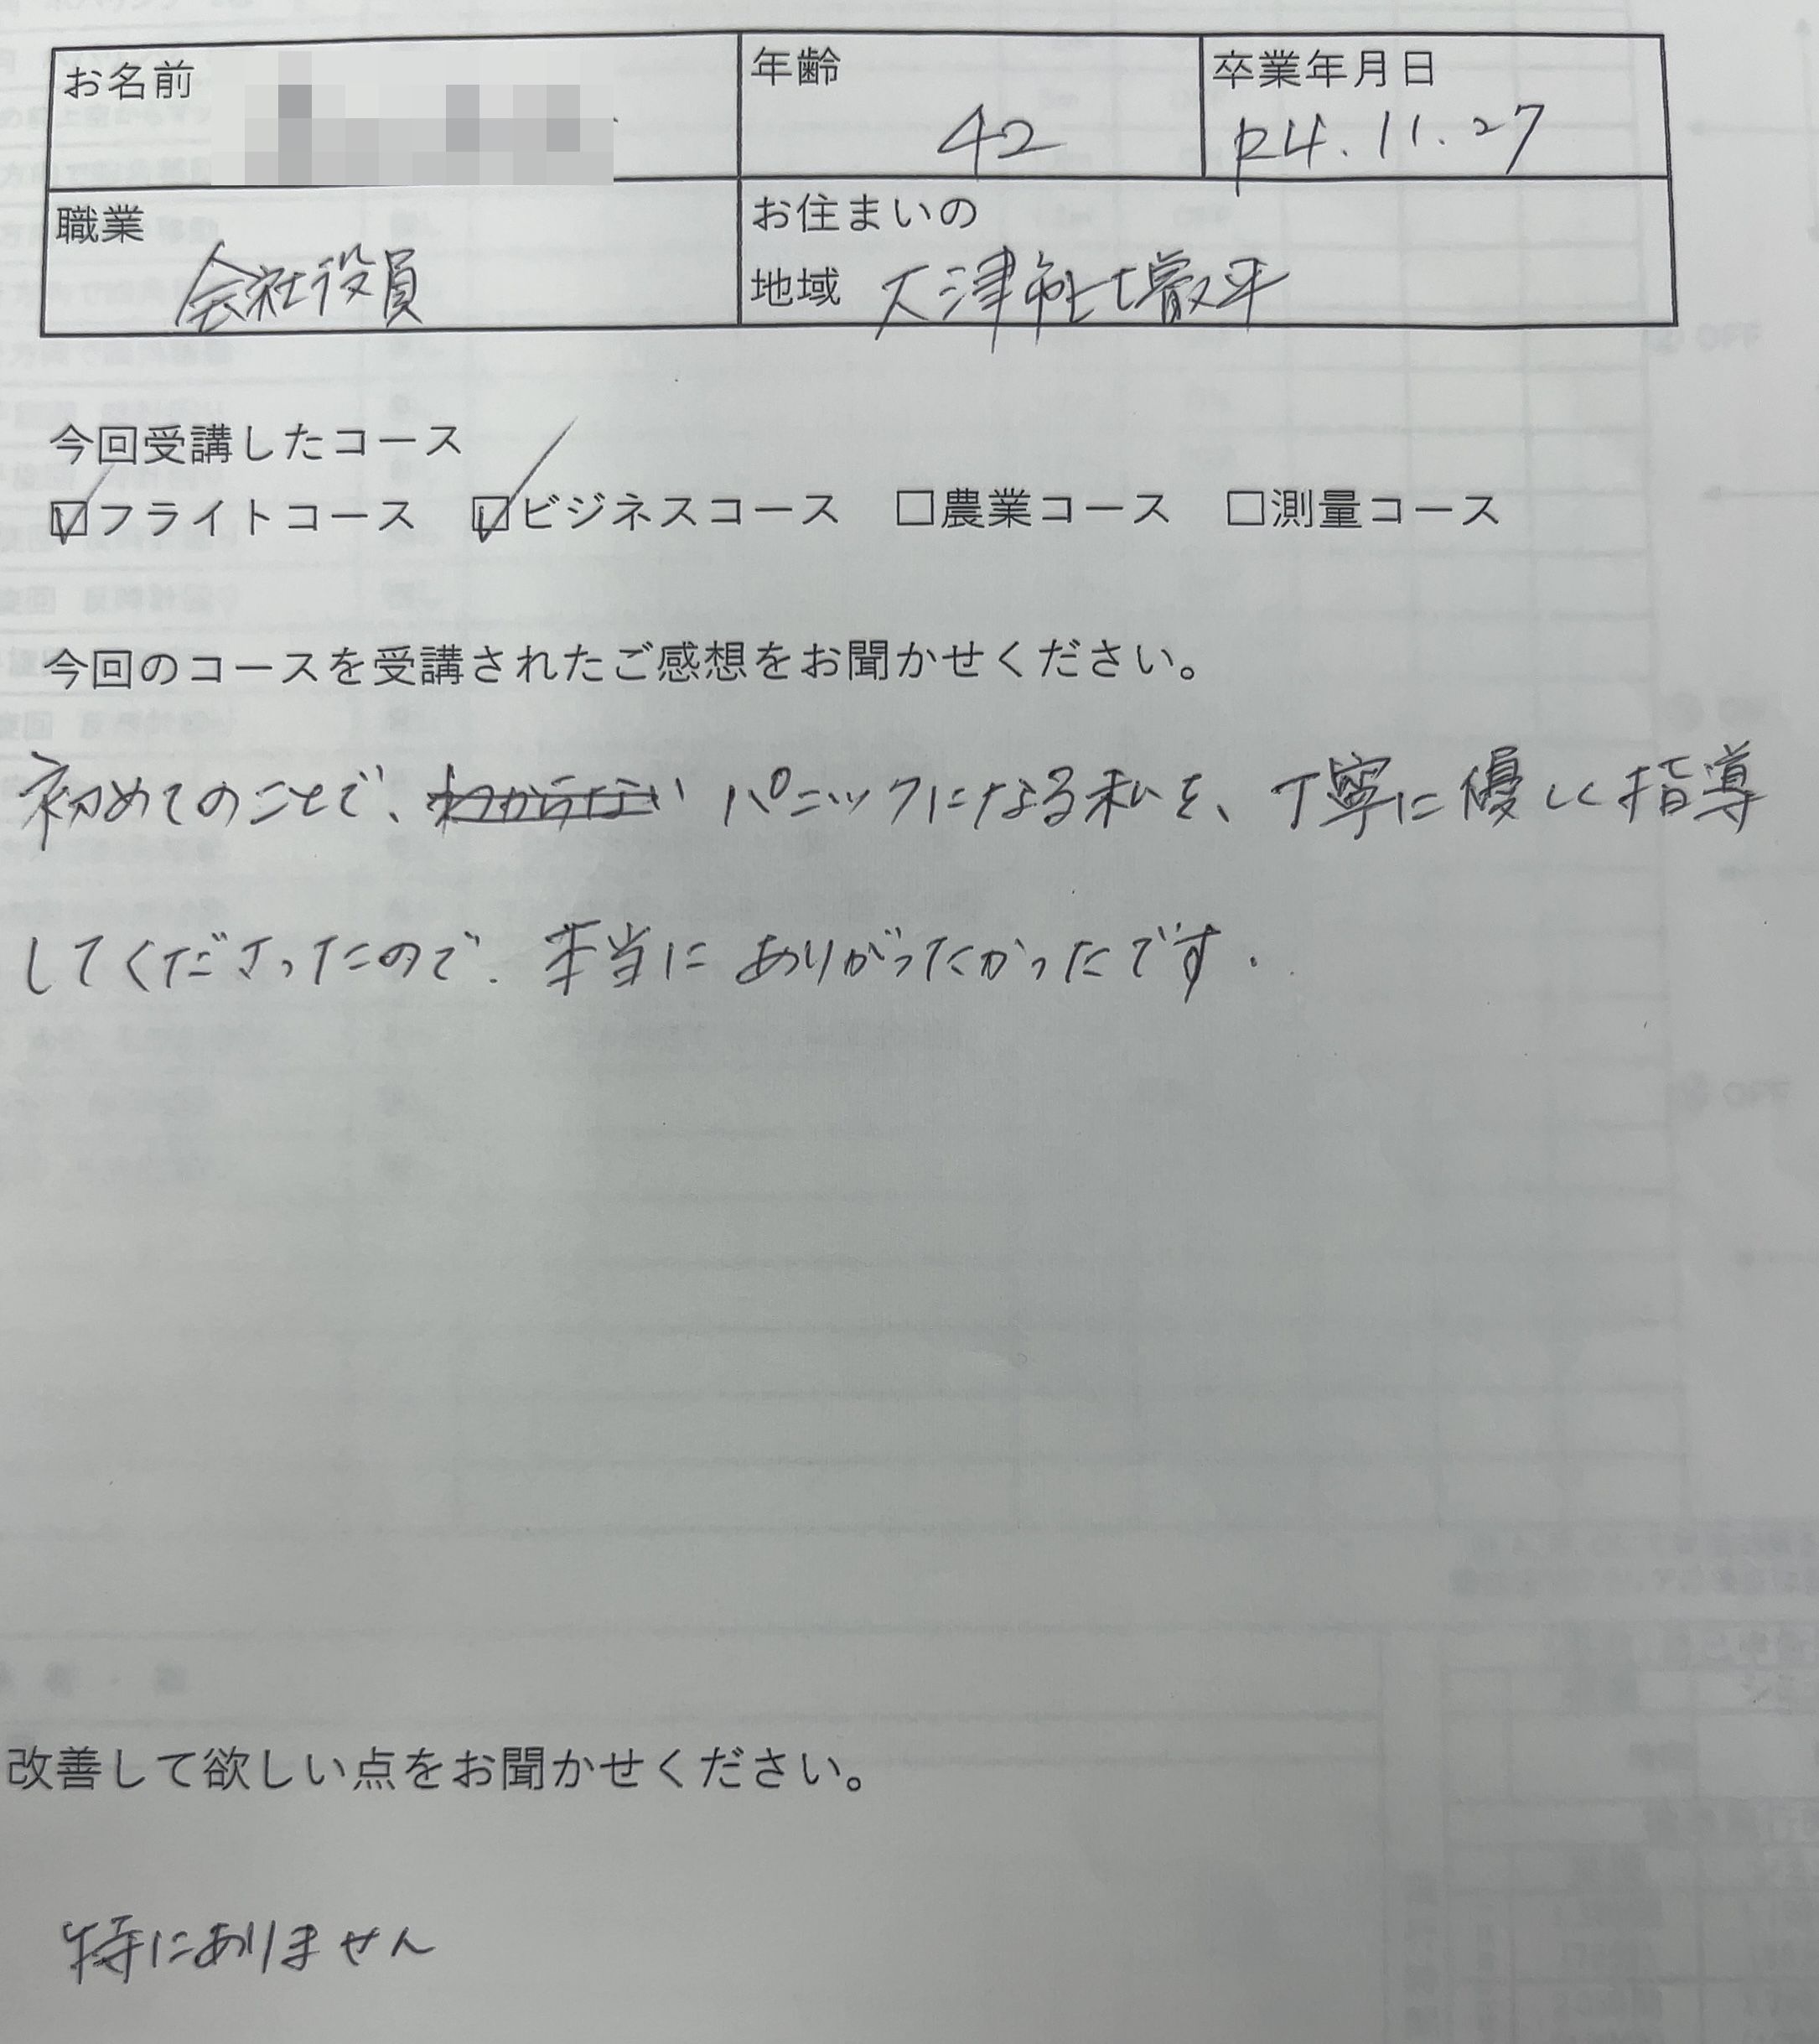 お名前
年齢
42
卒業年月日
R4.11.27
職業
会社役員
お住まいの
地域 大津 比叡平
今回受講したコース
☑フライトコース ☑ビジネスコース □農業コース □測量コース
今回のコースを受講されたご感想をお聞かせください。
初めてのことで、わからない パニックになる私を、丁寧に優しく指導
してくださったので、本当にありがったかったです.
改善して欲しい点をお聞かせください。
特にありません